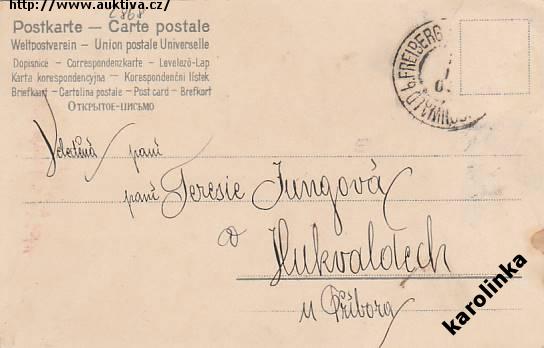 http://www.auktiva.cz/
2868
Postkarte — Carte postale
Weltpostverein - Union postale Universelle
Dopisnice - Correspondenzkarte - Levelező-Lap
Karta korespondencyjna - Korespondenční lístek
Briefkaart - Cartolina postale - Post card - Brefkort
ОТКРЫТОЕ-ПИСЬМО
FREIBERG
Veletěná paní
paní Teresie Jungová
v
Hukvaldech
u Příbora
karolinka